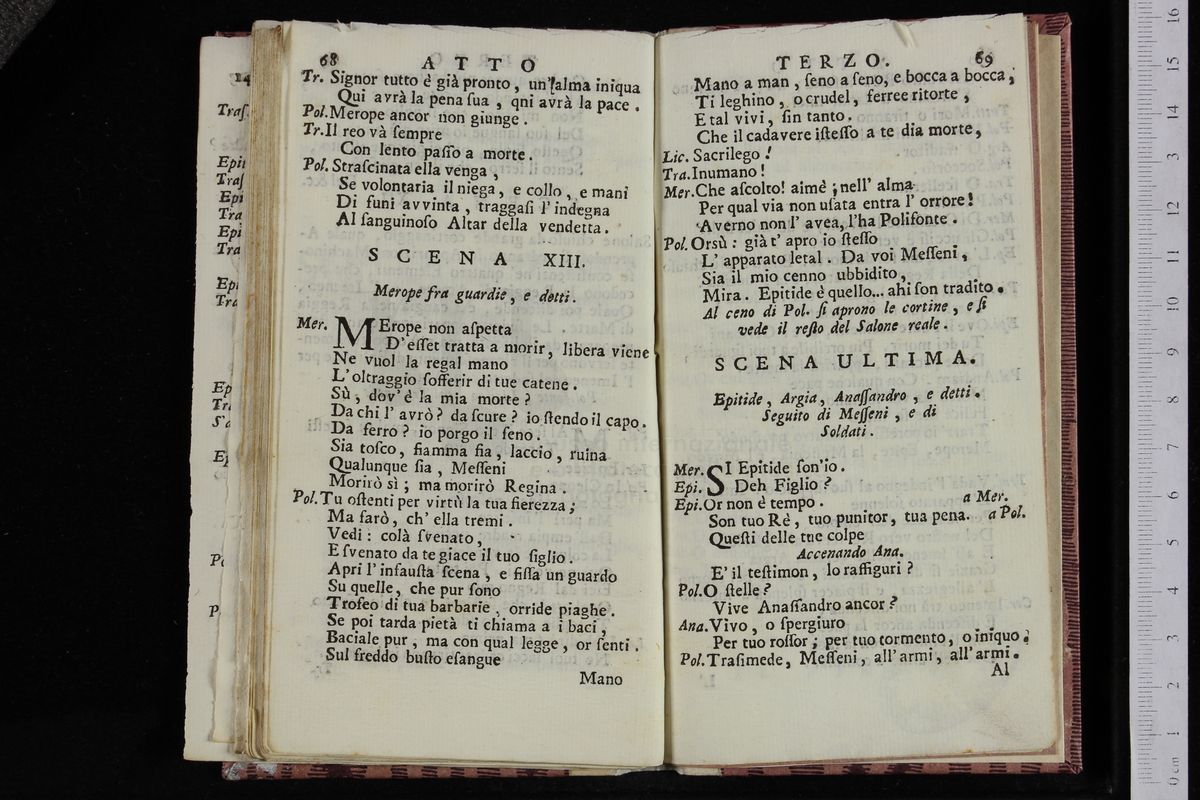 68 ATTO
Tr. Signor tutto è già pronto, un'alma iniqua
Qui avrà la pena ſua, qni avrà la pace.
Pol. Merope ancor non giunge.
Tr. Il reo và ſempre
Con lento paſſo a morte.
Pol. Straſcinata ella venga,
Se volontaria il niega, e collo, e mani
Di funi avvinta, traggaſi l'indegna
Al ſanguinoſo Altar della vendetta.
SCENA XIII.
Merope fra guardie, e detti.
Mer. MErope non aſpetta
D'eſſet tratta a morir, libera viene
Ne vuol la regal mano
L'oltraggio ſofferir di tue catene.
Sù, dov'è la mia morte?
Da chi l'avrò? da ſcure? io ſtendo il capo.
Da ferro? io porgo il ſeno.
Sia toſco, fiamma ſia, laccio, ruina
Qualunque ſia, Meſſeni
Morirò sì; ma morirò Regina.
Pol. Tu oſtenti per virtù la tua fierezza;
Ma farò, ch'ella tremi.
Vedi: colà ſvenato,
E ſvenato da te giace il tuo figlio.
Apri l'infauſta ſcena, e fiſſa un guardo
Su quelle, che pur ſono
Trofeo di tua barbarie, orride piaghe.
Se poi tarda pietà ti chiama a i baci,
Baciale pur, ma con qual legge, or ſenti.
Sul freddo buſto eſangue
Mano
TERZO. 69
Mano a man, ſeno a ſeno, e bocca a bocca,
Ti leghino, o crudel, ferree ritorte,
E tal vivi, ſin tanto.
Che il cadavere iſteſſo a te dia morte,
Lic. Sacrilego!
Tra. Inumano!
Mer. Che aſcolto! aimè; nell'alma
Per qual via non uſata entra l'orrore!
Averno non l'avea, l'ha Polifonte.
Pol. Orsù: già t'apro io ſteſſo
L'apparato letal. Da voi Meſſeni,
Sia il mio cenno ubbidito,
Mira. Epitide è quello... ahi ſon tradito.
Al ceno di Pol. ſi aprono le cortine, e ſi
vede il reſto del Salone reale.
SCENA ULTIMA.
Epitide, Argia, Anaſſandro, e detti.
Seguito di Meſſeni, e di
Soldati.
Mer. SI Epitide ſon'io.
Epi. Deh Figlio?
Epi. Or non è tempo. a Mer.
Son tuo Rè, tuo punitor, tua pena. a Pol.
Queſti delle tue colpe
Accenando Ana.
E' il teſtimon, lo raffiguri?
Pol. O ſtelle?
Vive Anaſſandro ancor?
Ana. Vivo, o ſpergiuro
Per tuo roſſor; per tuo tormento, o iniquo.
Pol. Traſimede, Meſſeni, all'armi, all'armi.
Al
14
Traſ.
Epi
Traſ
Epi
Tra
Epi
Tra
Epi
Tra
Ep